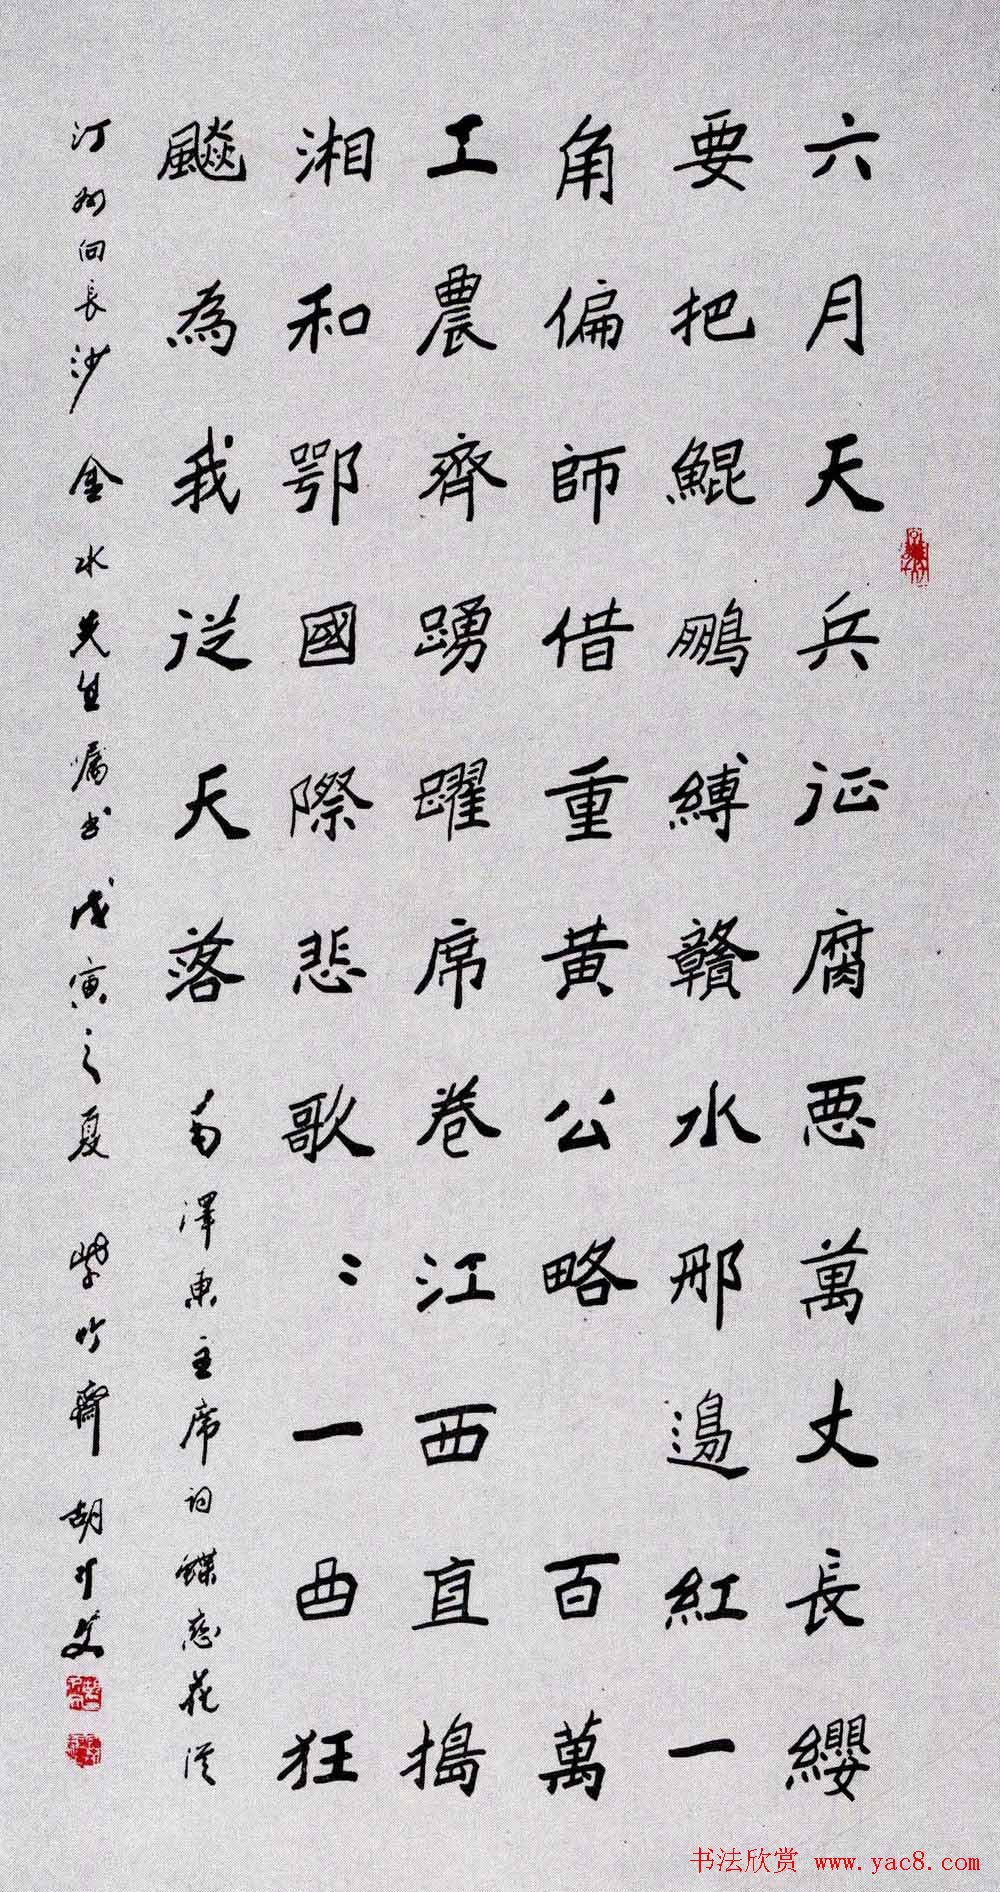 六月天兵征腐悪萬丈長纓
要把鯤鵬縛贛水那邊紅一
角偏師借重黄公略百萬
工農齊踴躍席卷江西直搗
湘和鄂國際悲歌〻一曲狂
飈為我從天落 毛澤東主席詞蝶恋花從
汀州向長沙 金水先生属書 戊寅之夏 紫竹齋 胡
书法欣赏 www.yac8.com